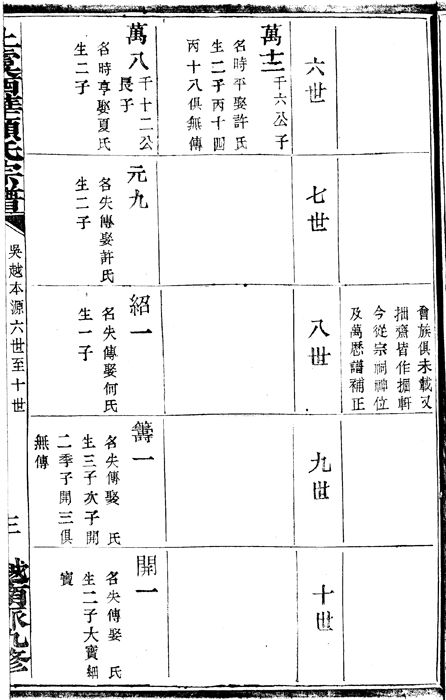 會族俱未載又
拙齋皆作掘軒
今從宗祠神位
及萬厯譜補正
六世
七世
八世
九世
十世
萬十二
千六公子
名時平娶許氏
生二子丙十四
丙十八俱無傳
萬八
千十二公
長子
名時享娶夏氏
生二子
元九
名失傳娶許氏
生二子
紹一
名失傳娶何氏
生一子
籌一
名失傳娶 氏
生三子次子開
二季子開三俱
無傳
開一
名失傳娶 氏
生二子大寶細
寶
上虞西華顧氏宗譜
吳越本源六世至十世
三